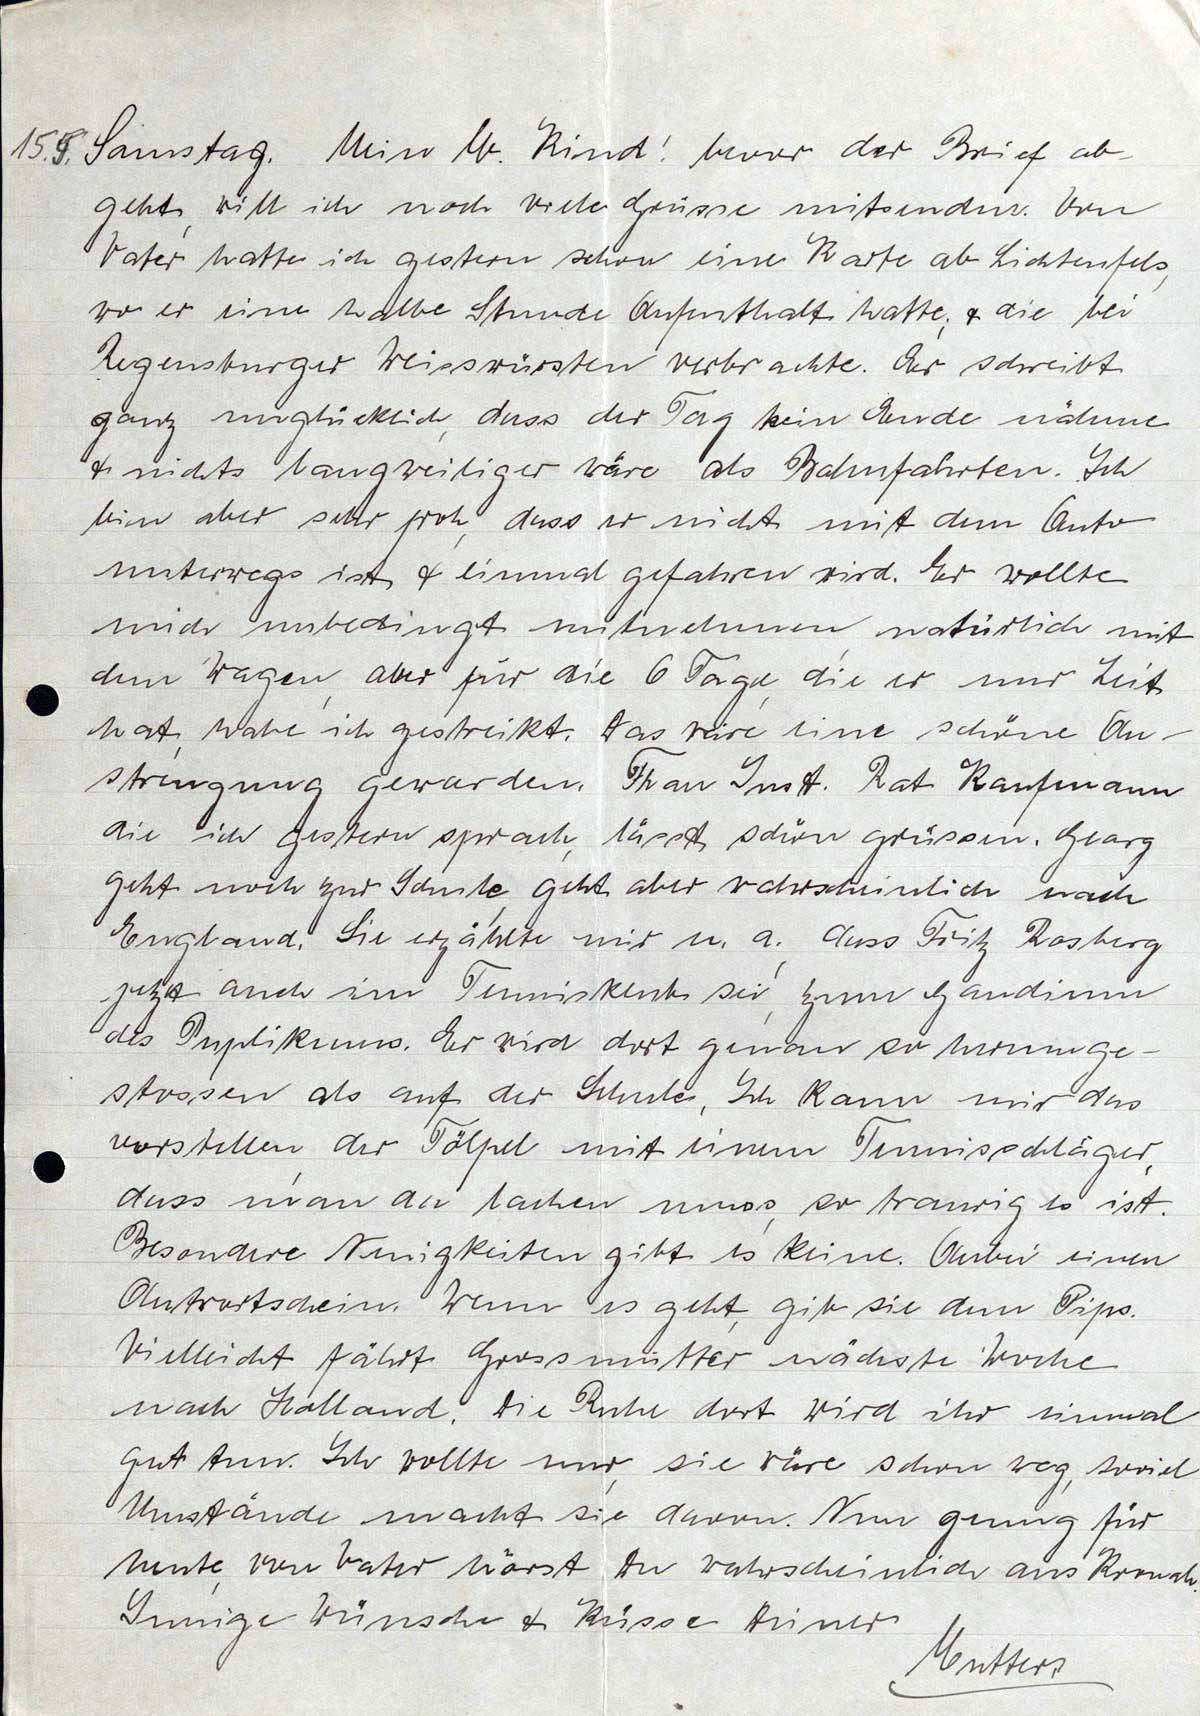 15.9. Samstag. Mein lb. Kind! bevor der Brief ab-
geht, will ich noch viele Grüsse mitsenden. Von
Vater hatte ich gestern schon eine Karte ab Lichtenfels,
wo er eine halbe Stunde Aufenthalt hatte, & die bei
Regensburger Weisswürsten verbrachte. Er schreibt
ganz unglücklich, dass der Tag kein Ende nähme
& nichts langweiliger wäre als Bahnfahrten. Ich
bin aber sehr froh, dass er nicht mit dem Auto
unterwegs ist & einmal gefahren wird. Er wollte
mich unbedingt mitnehmen, natürlich mit
dem Wagen, aber für die 6 Tage, die er nur Zeit
hat, habe ich gestreikt. Das wäre eine schöne An-
strengung geworden. Frau Just. Rat Kaufmann
die ich gestern sprach, lässt schön grüssen. Georg
geht noch zur Schule, geht aber wahrscheinlich nach
England. Sie erzählte mir u. a., dass Fritz Rosberg
jetzt auch im Tennisklub sei, zum Gaudium
des Puplikums. Er wird dort genau so herumge-
stossen als auf der Schule. Ich kann mir das
vorstellen, der Tölpel mit einem Tennisschläger,
dass man da lachen muss, so traurig es ist.
Besondere Neuigkeiten gibt es keine. Anbei einen
Antwortschein. Wenn es geht, gib sie dem Pips.
Vielleicht fährt Grossmutter nächste Woche
nach Holland. Die Ruhe dort wird ihr einmal
gut tun. Ich wollte nur, sie wäre schon weg, soviel
Umstände macht sie davon. Nun genug für
heute, von Vater hörst Du wahrscheinlich aus Kronach.
Innige Wünsche & Küsse Deiner
Mutter